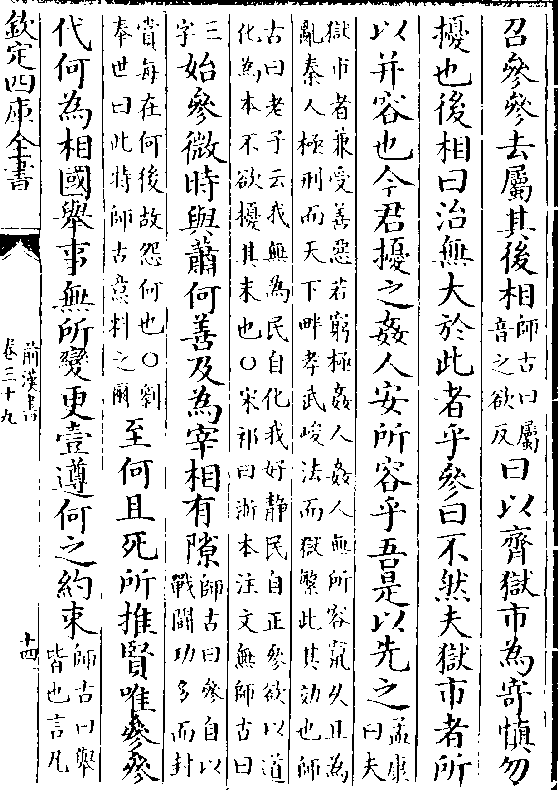 召參參去屬其後相師古曰屬音之欲反曰以齊獄市為寄慎勿
擾也後相曰治無大於此者乎參曰不然夫獄市者所
以并容也今君擾之姦人安所容乎吾是以先之孟康曰夫
獄市者兼受善惡若窮極姦人姦人無所容竄久且為
亂秦人極刑而天下畔孝武峻法而獄繁此其効也師
古曰老子云我無為民自化我好靜民自正參欲以道
化為本不欲擾其末也○宋祁曰浙本注文無師古曰
三字始參微時與蕭何善及為宰相有隙師古曰參自以戰鬭功多而封
賞每在何後故怨何也○劉奉世曰此特師古意料之爾至何且死所推賢唯參參
代何為相國舉事無所變更壹遵何之約束師古曰舉皆也言凡
欽定四庫全書
前漢書
卷三十九
十四